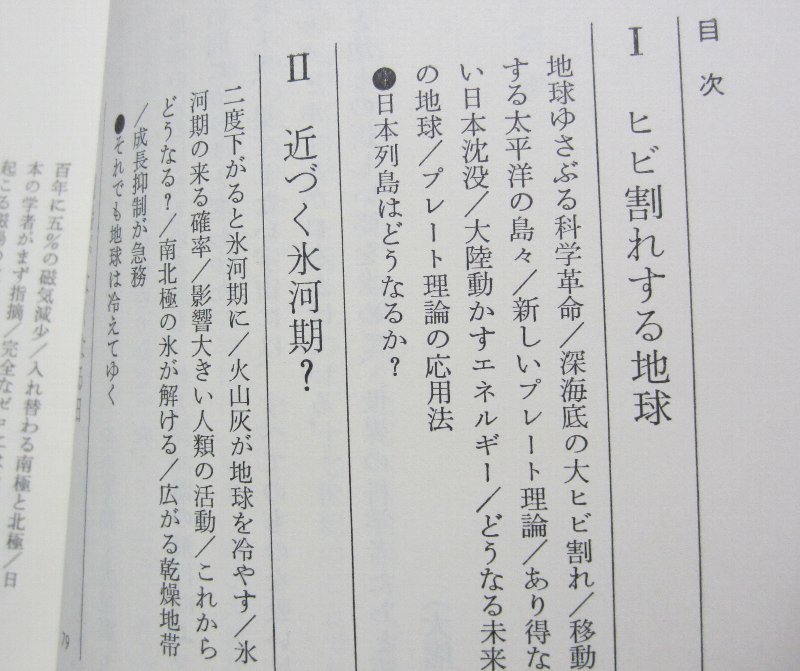 目次
I ヒビ割れする地球
地球ゆさぶる科学革命/深海底の大ヒビ割れ/移動
する太平洋の島々/新しいプレート理論/あり得な
い日本沈没/大陸動かすエネルギー/どうなる未来
の地球/プレート理論の応用法
●日本列島はどうなるか?
II 近づく氷河期?
二度下がると氷河期に/火山灰が地球を冷やす/氷
河期の来る確率/影響大きい人類の活動/これから
どうなる?/南北極の氷が解ける/広がる乾燥地帯
/成長抑制が急務
●それでも地球は冷えてゆく
79
百年に五%の磁気減少/入れ替わる南極と北極/日
本の学者がまず指摘/完全な
起こる磁場の